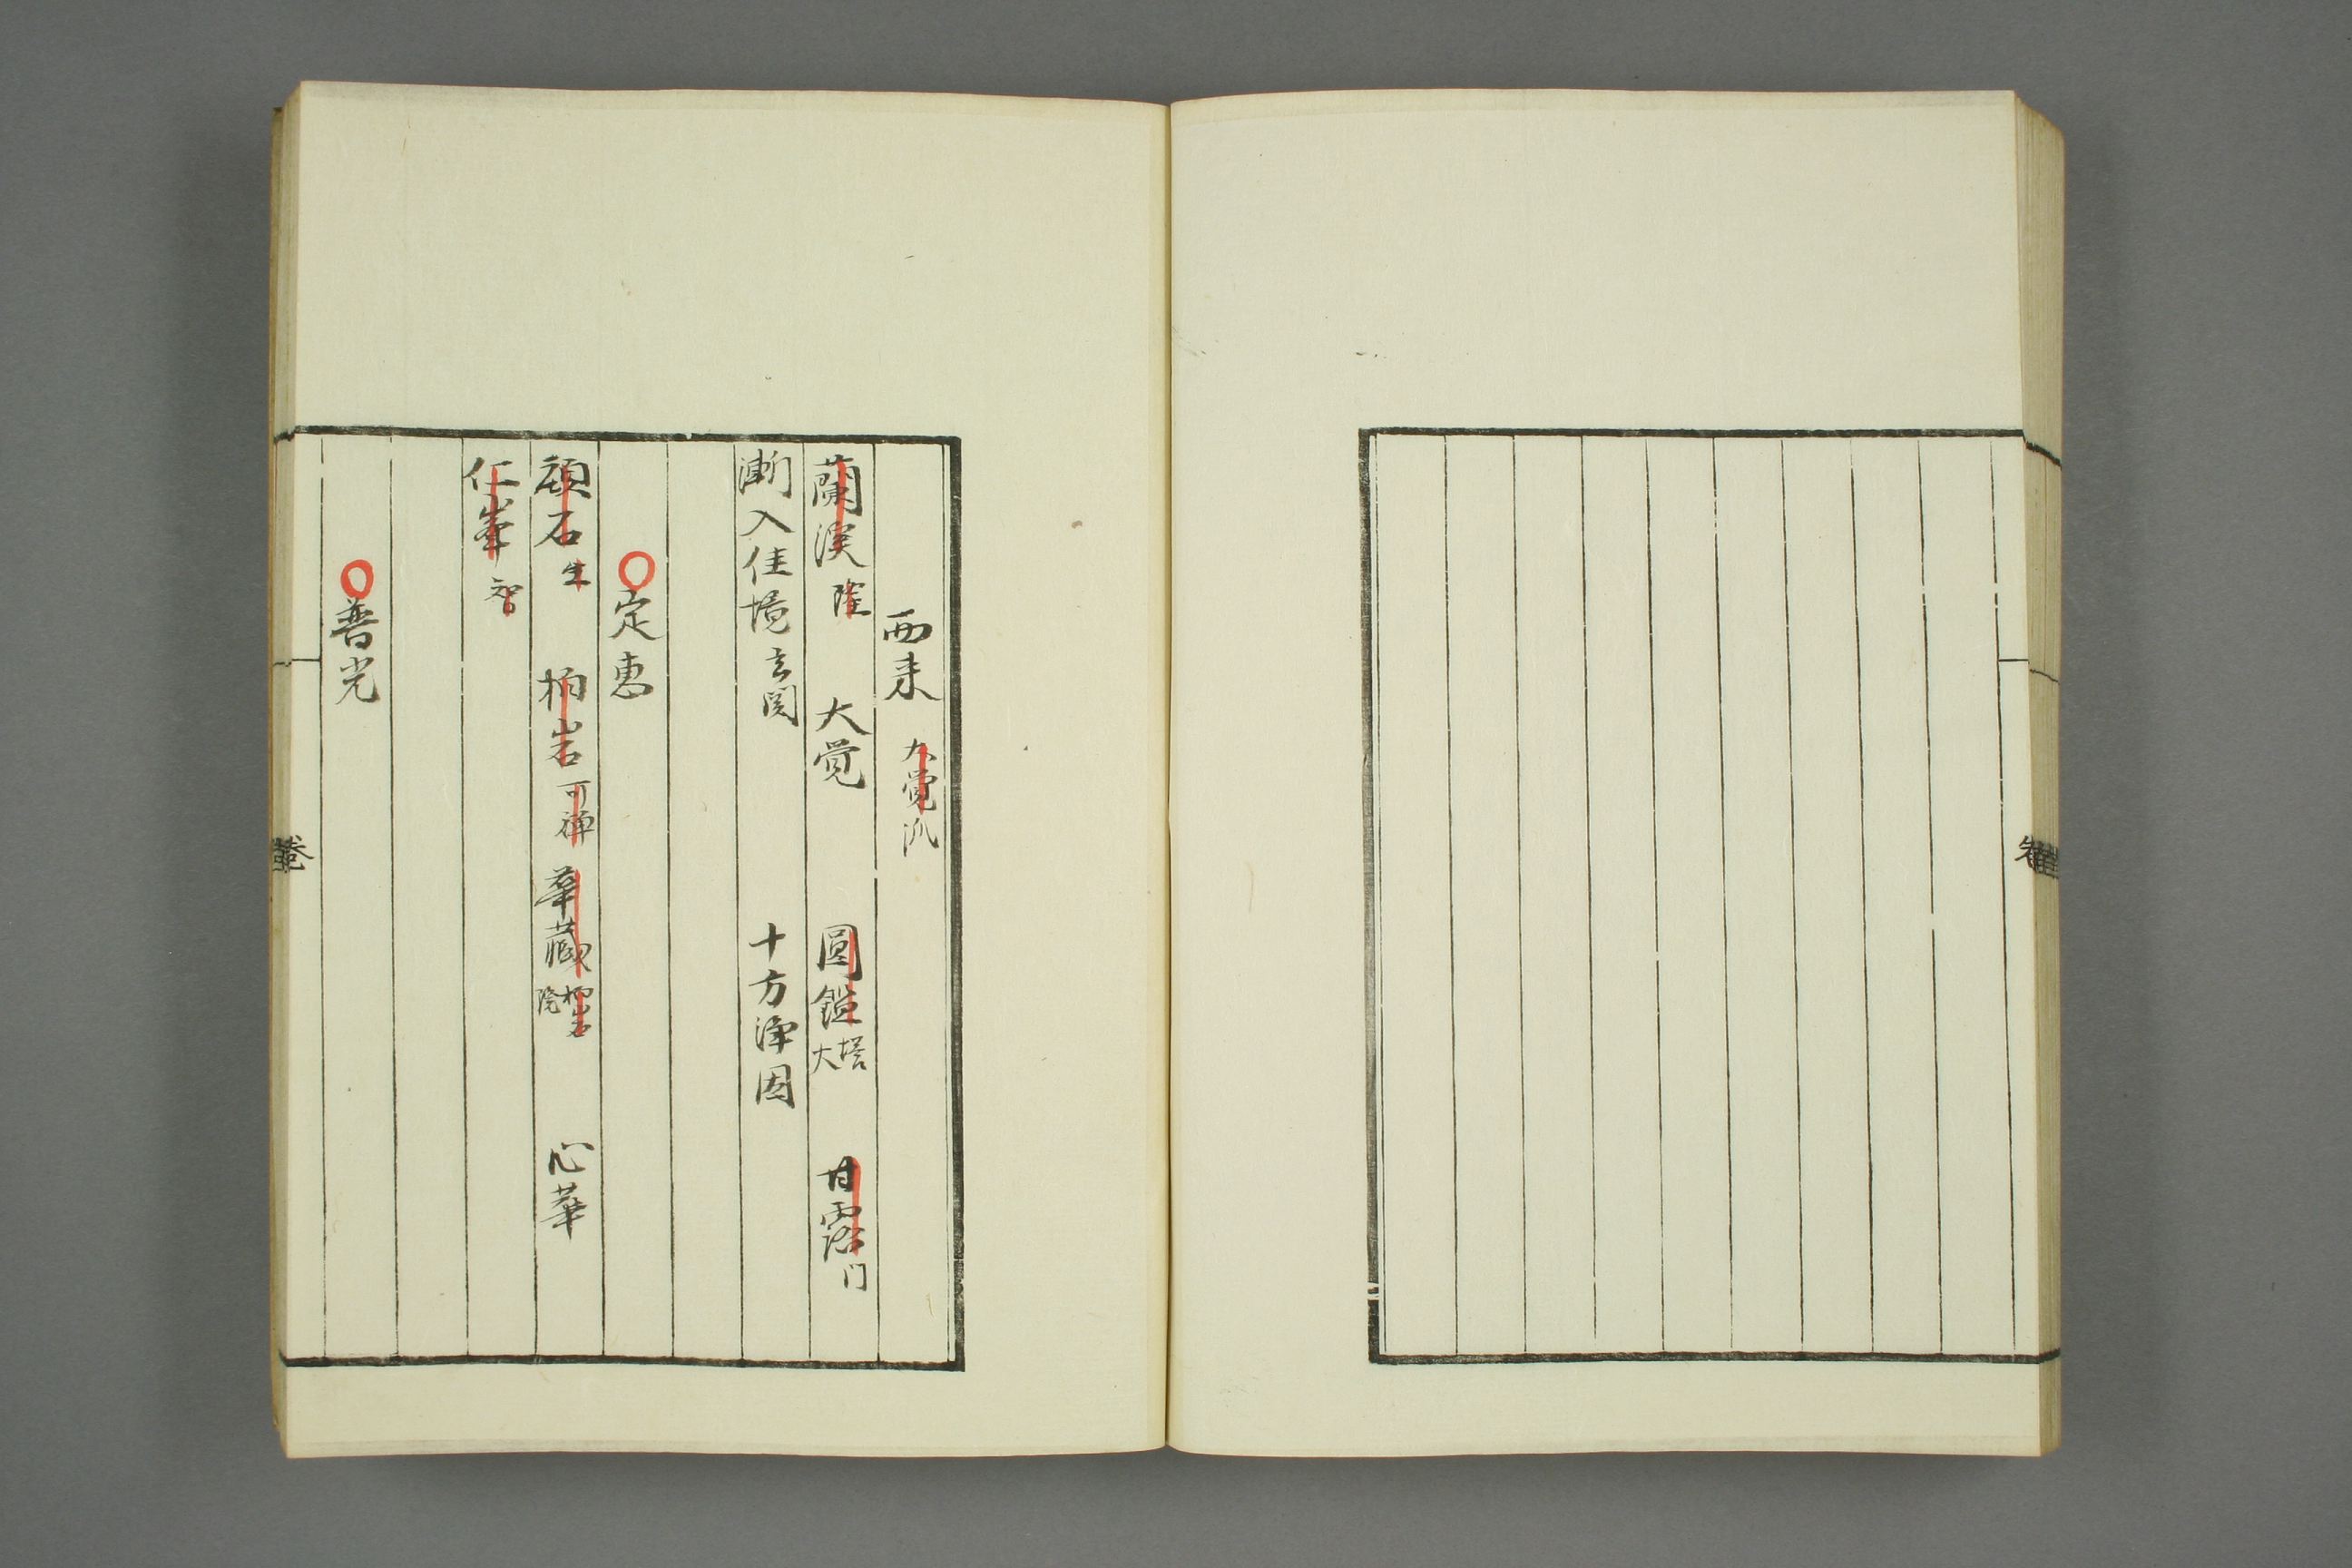 西来 大覚派
蘭渓 隆 大覚 圓鑑 塔大 甘露 门
漸入佳境 玄関 十方浄因
○定恵
頑石 生 柄岩 可禅 華蔵 柄岩院 心華
仁峯 智
○普光